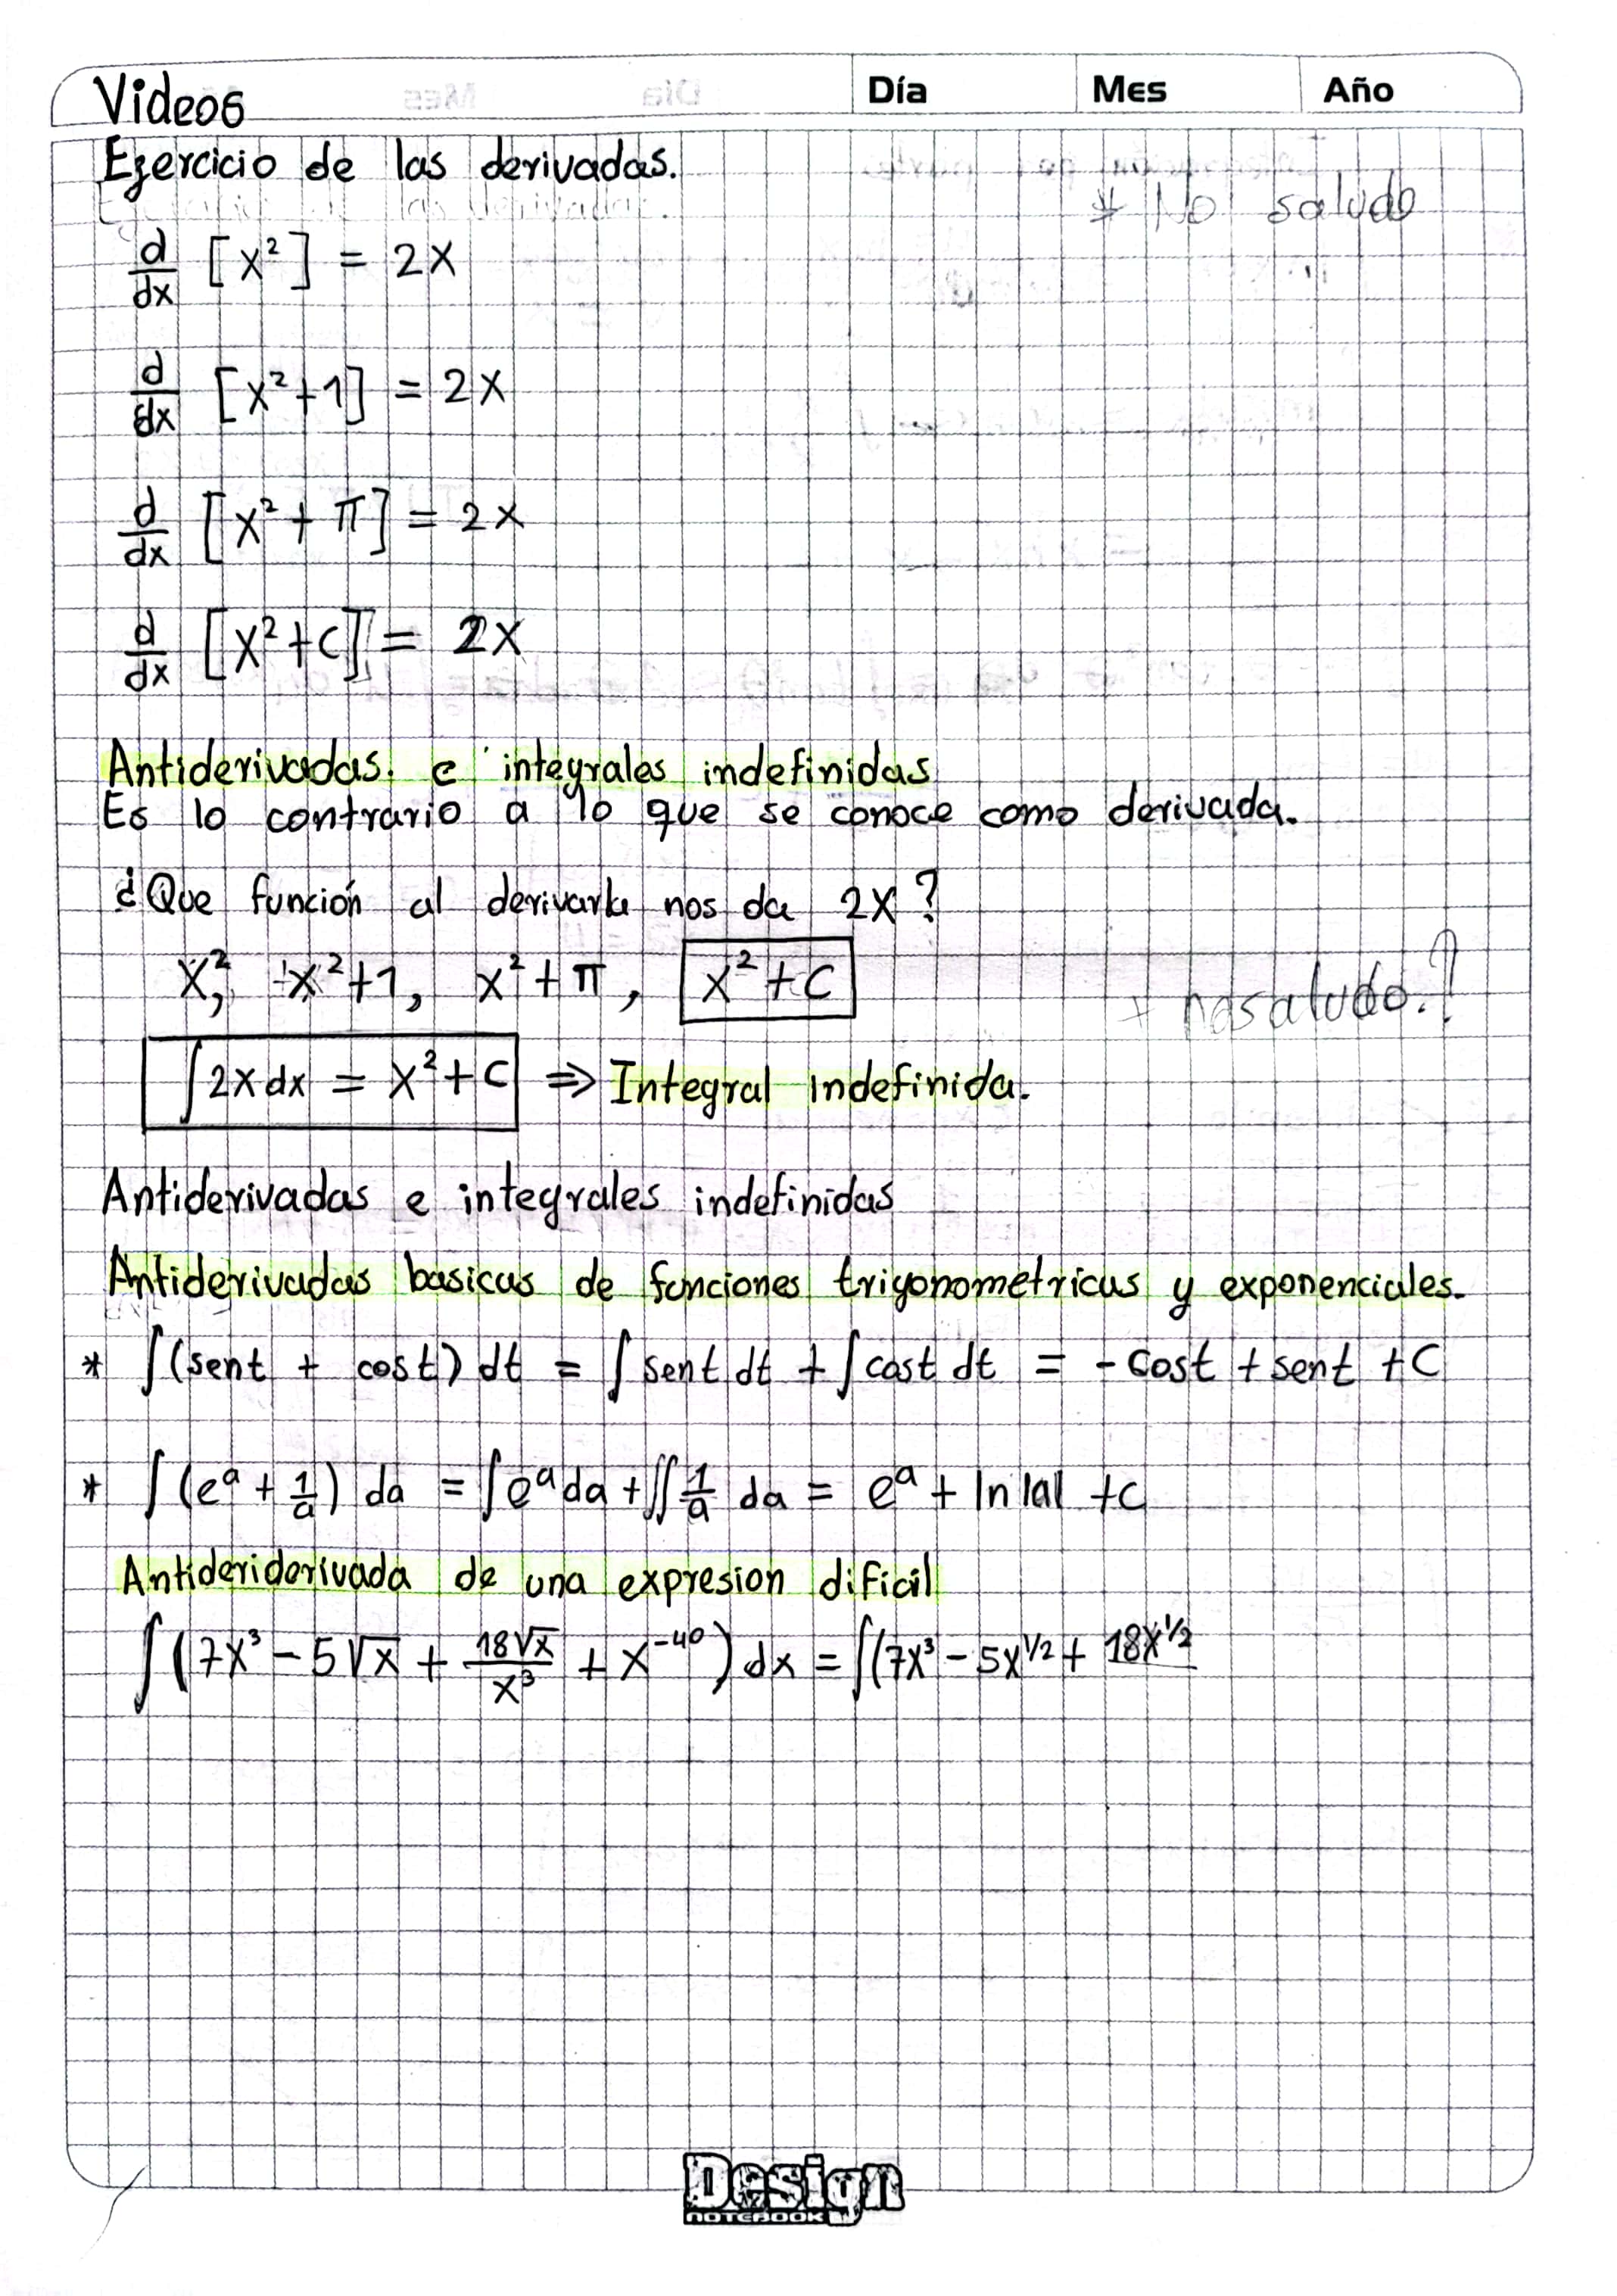 Videos
Día Mes Año
Ejercicio de las derivadas.
* No saludo
d/dx [x²] = 2x
d/dx [x²+1] = 2x
d/dx [x² + π] = 2x
d/dx [x²+c] = 2x
Antiderivadas e integrales indefinidas
Es lo contrario a lo que se conoce como derivada.
¿Que función al derivarla nos da 2x?
x², x²+1, x²+π, x²+C
+ no saludo.?
∫2x dx = x²+C ⇒ Integral indefinida.
Antiderivadas e integrales indefinidas
Antiderivadas basicas de funciones trigonometricas y exponenciales.
* ∫(sent + cost) dt = ∫sent dt + ∫cost dt = -cost + sent + C
* ∫(eᵃ + 1/a) da = ∫eᵃ da + ∫∫ 1/a da = eᵃ + ln|a| + c
Antideriderivada de una expresion dificil
∫(7x³ - 5√x + 18√x/x³ + x⁻⁴⁰) dx = ∫(7x³ - 5x^1/2 + 18x^1/2
Design
NOTEBOOK